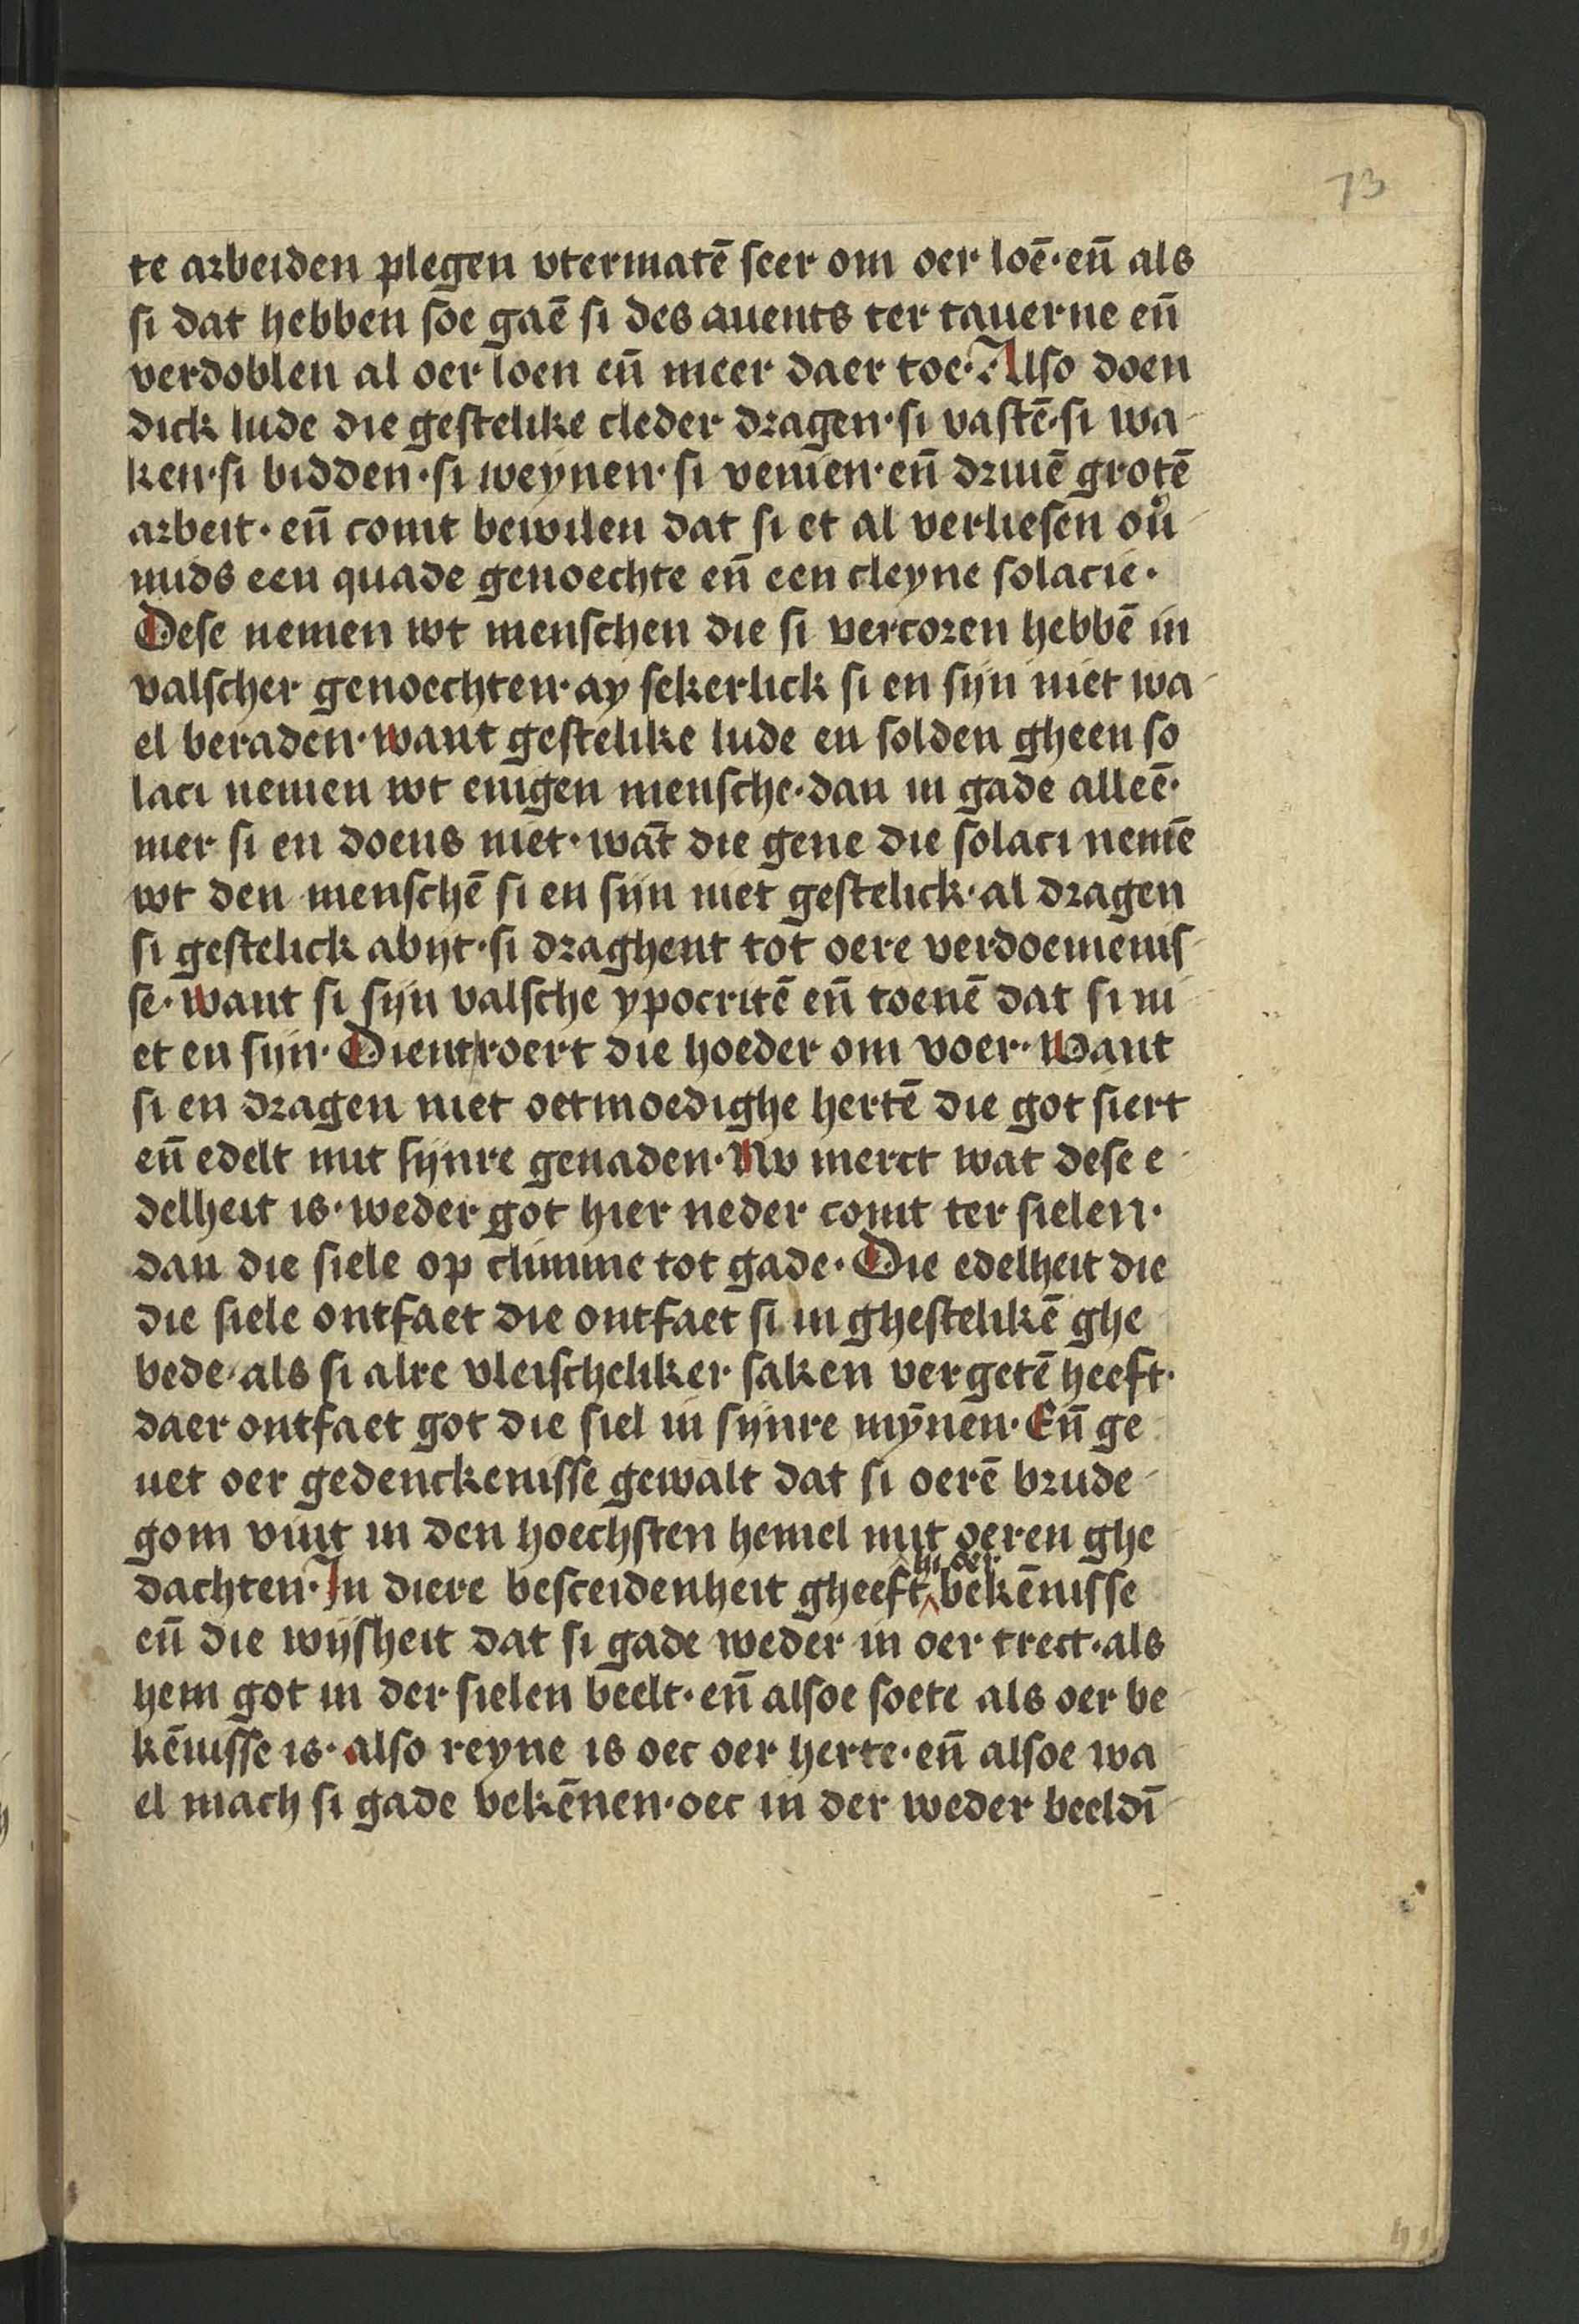 73
te arbeiden plegen vtermatē seer om oer loē· eñ als
si dat hebben soe gaē si des auents ter tauerne eñ
verdoblen al oer loen eñ meer daer toe· Also doen
dick lude die gestelike cleder dragen· si vastē· si wa-
ken· si bidden· si weynen· si venien· eñ driuē grotē
arbeit· eñ comt bewilen dat si et al verliesen ou̾-
mids een quade genoechte eñ een cleyne solacie·
Dese nemen wt menschen die si vercoren hebbē in
valscher genoechten· ay sekerlick si en sijn niet wa-
el beraden· want gestelike lude en solden gheen so
laci nemen wt enigen mensche· dan in gade alleē·
mer si en doens niet· wāt die gene die solaci nemē
wt den menschē si en sijn niet gestelick· al dragen
si gestelick abijt· si draghent tot oere verdoemenis-
se· want si sijn valsche ypocritē eñ toenē dat si ni-
et en sijn· Dient roert die hoeder om voer· Want
si en dragen niet oetmoedighe hertē die got siert
eñ edelt mit sijnre genaden· Nv merct wat dese e-
delheit is· weder got hier neder comt ter sielen·
dan die siele op climme tot gade· Die edelheit die
die siele ontfaet die ontfaet si in ghestelikē ghe
bede· als si alre vleischeliker saken vergetē heeft·
daer ontfaet got die siel in sijnre mȳnen· Eñ ge
uet oer gedenckenisse gewalt dat si oerē brude-
gom vint in den hoechsten hemel mit oeren ghe
dachten· In diere besceidenheit gheeft hi oer bekēnisse
eñ die wijsheit dat si gade weder in oer trect· als
hem got in der sielen beelt· eñ alsoe soete als oer be-
kēnisse is· also reyne is oec oer herte· eñ alsoe wa
el mach si gade bekēnen· oec in der weder beeldī-